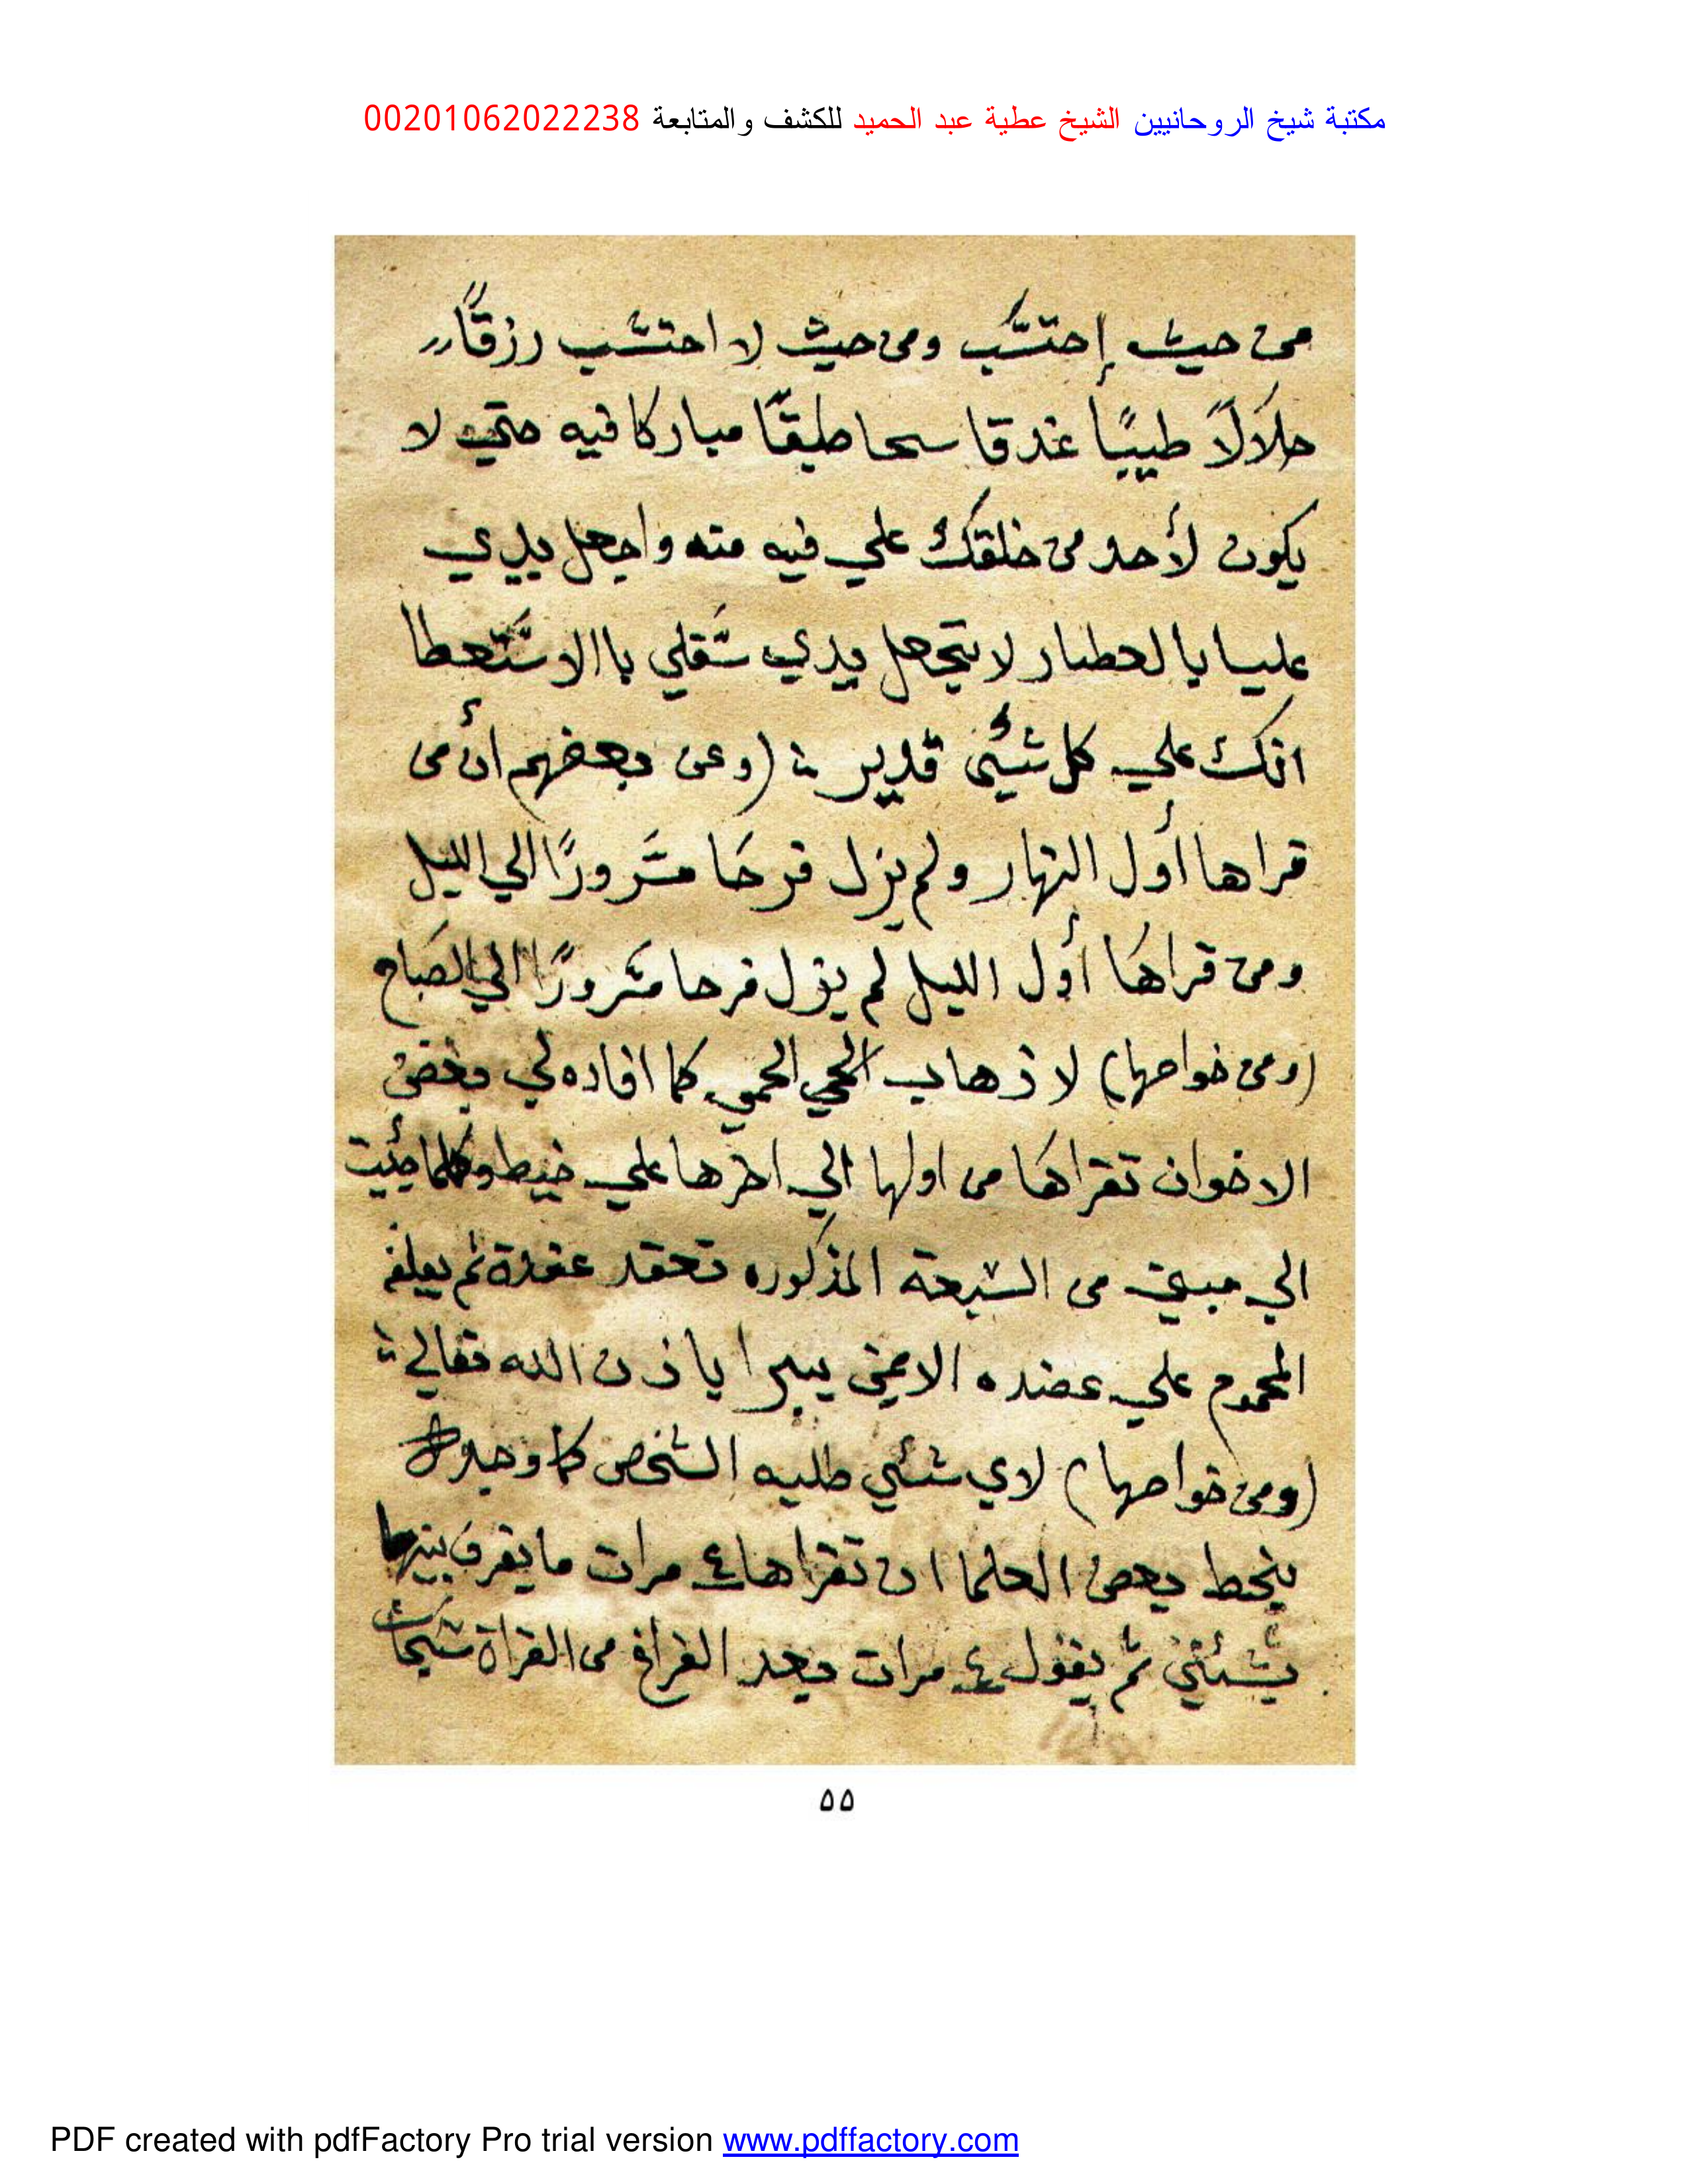 مكتبة شيخ الروحانيين الشيخ عطية عبد الحميد للكشف والمتابعة 00201062022238
من حيث إحتسب ومن حيث لا احتسب رزقًا
حلالاً طيبًا غدقا سحا طبقًا مباركا فيه حتي لا
يكون لأحد من خلقك علي فيه منه واجعل يدي
عليا بالعطا ولا تجعل يدي سفلي باالاستعطا
انك علي كل شئي قدير (وعن بعضهم أن من
قراها أول النهار ولم يزل فرحًا مسرورًا الي الليل
ومن قراها أول الليل لم يزل فرحا مسرورًا الي الصباح
(ومن خواصها) لا ذهاب الحمي كما افاده لي بعض
الاخوان تقراها من اولها الي اخرها علي خيط وكلما جئت
الي مبين من السبعة المذكوره تعقد عقدة ثم يعلق
المحموم علي عضده الايمن يبرا باذن الله تعالي
(ومن خواصها) لاي شئي طلبه الشخص كما وجد
بخط بعض العلما ان تقراها ٤ مرات ما يفرق بينها
بشئي ثم يقول ٤ مرات بعد الفراغ من القراة سبحان
۵۵
PDF created with pdfFactory Pro trial version www.pdffactory.com